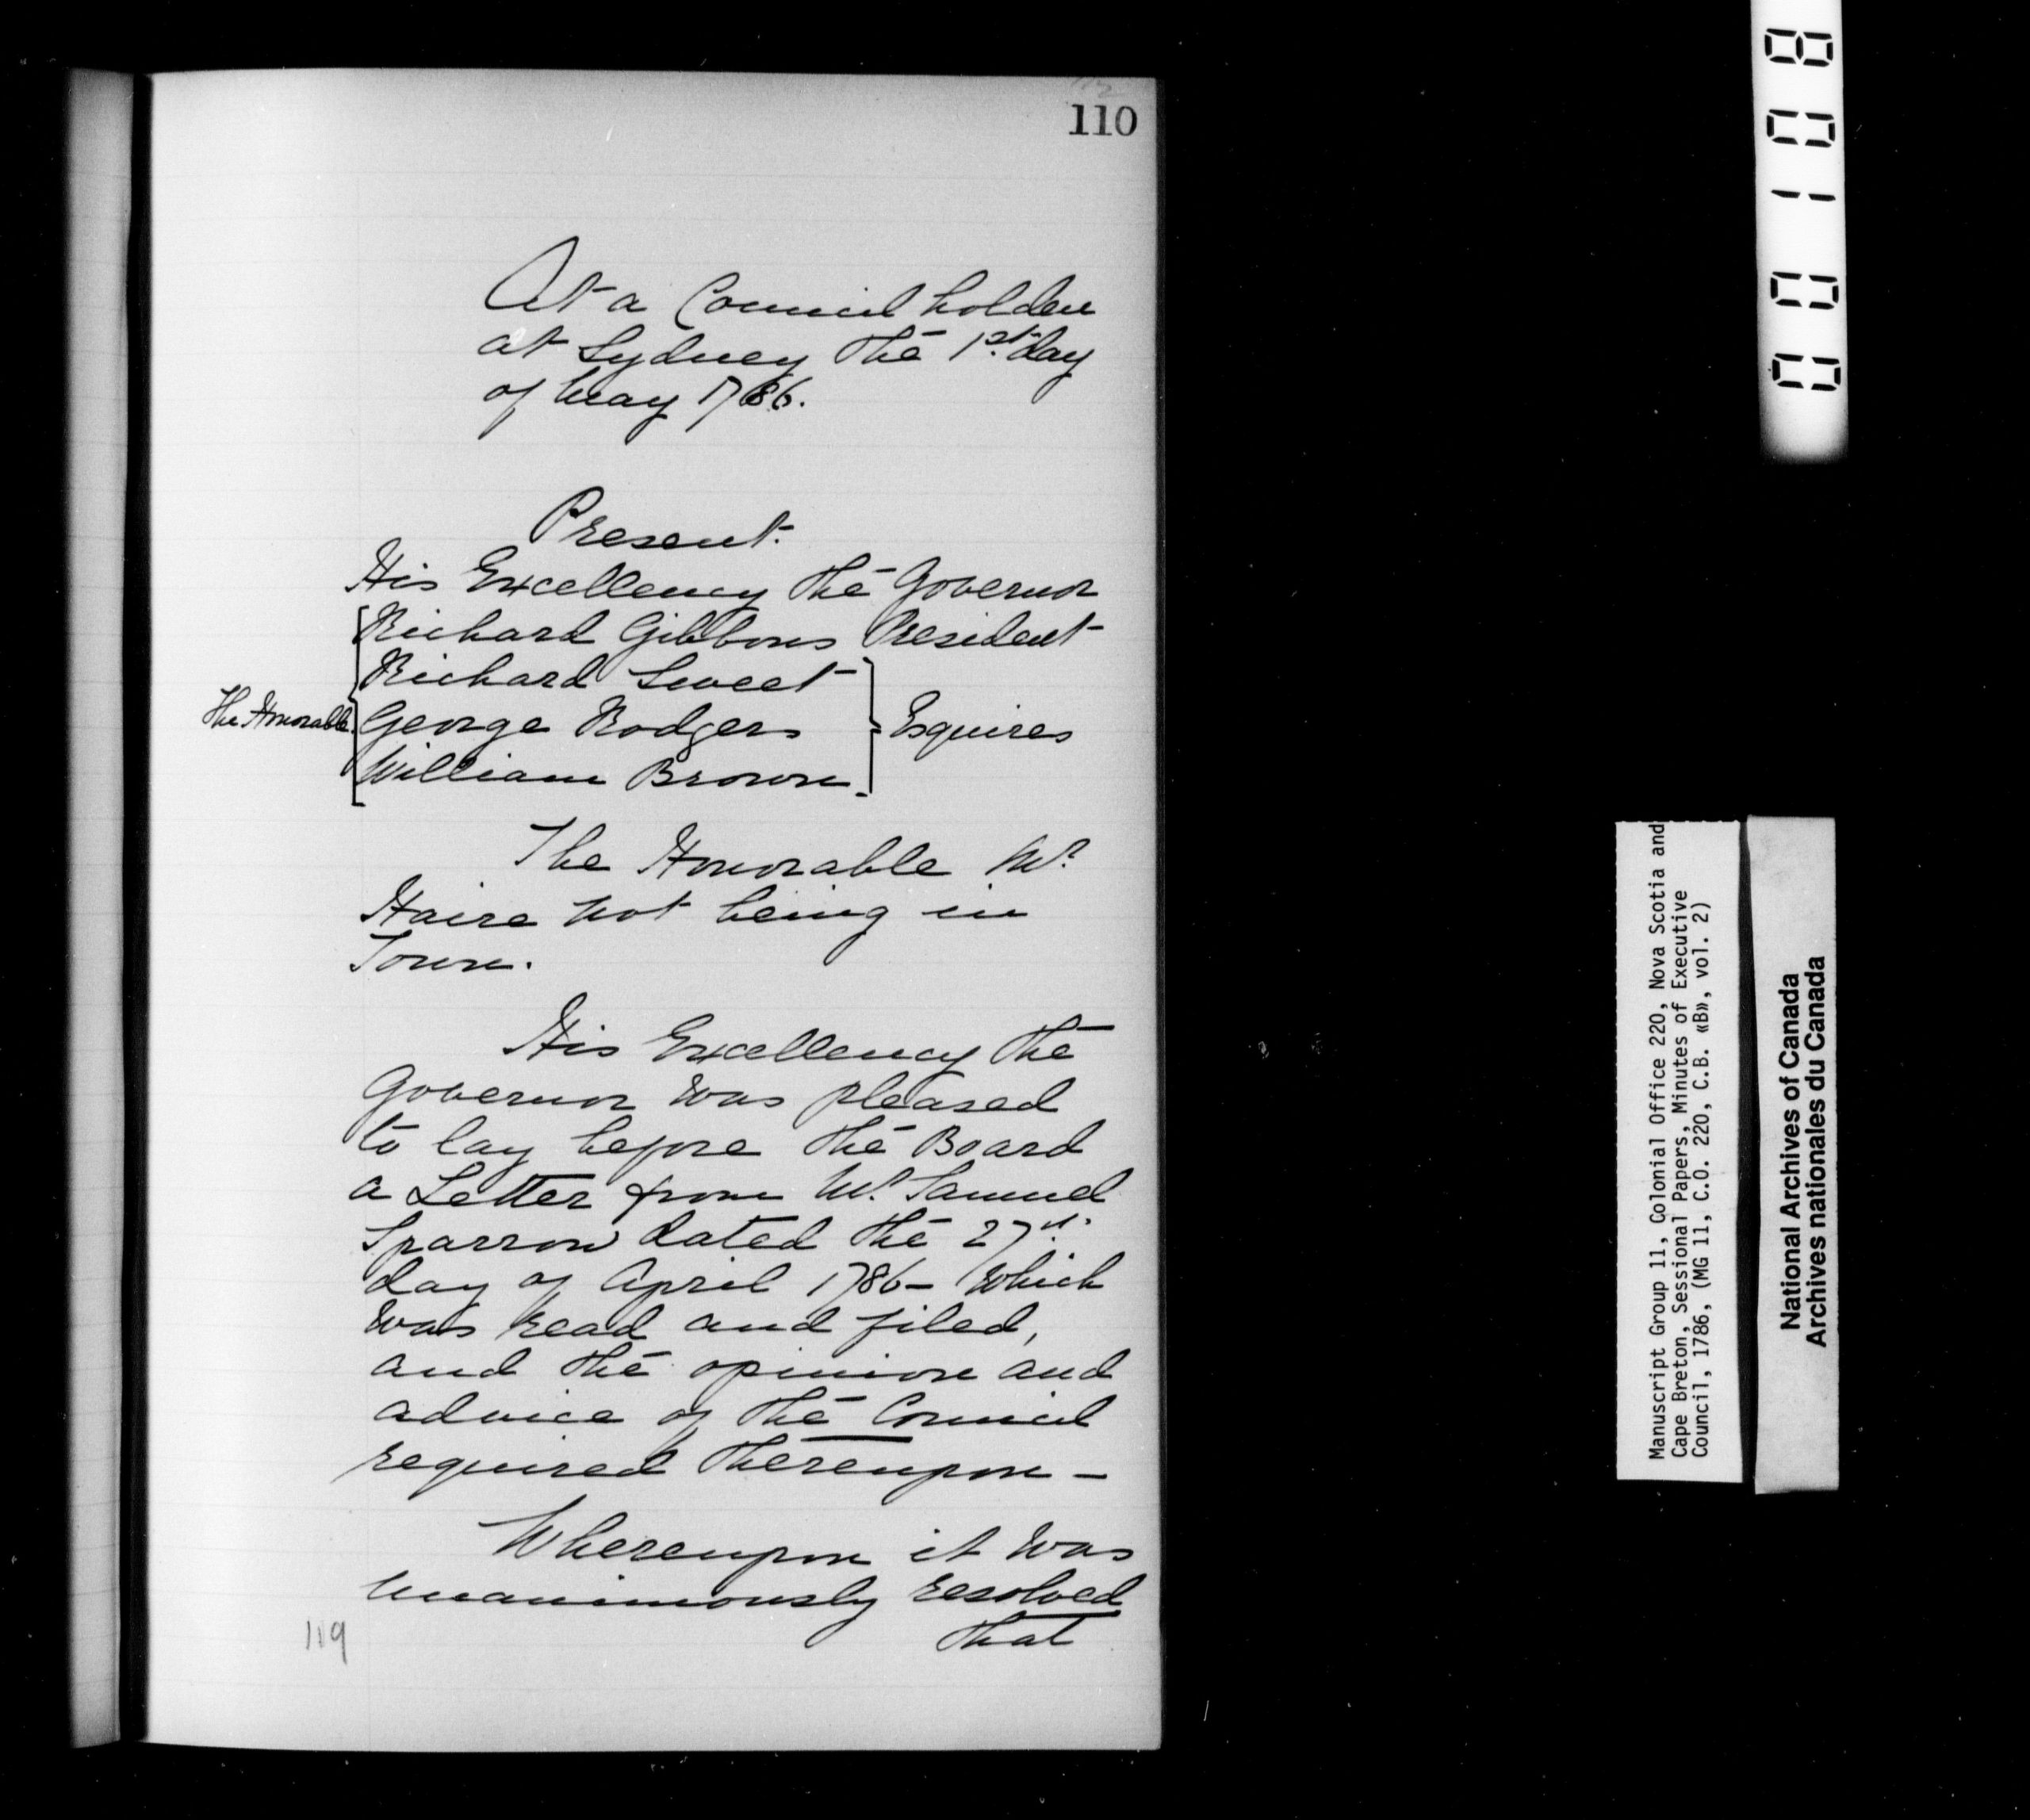 110
At a Council holden
at Sydney the 1st day
of May 1786.
Present.
His Excellency the Governor
Richard Gibbons President
Richard Sweet
The Honorable George Rodgers Esquires
William Brown.
The Honorable Mr
Haire not being in
Town.
His Excellency the
Governor was pleased
to lay before the Board
a Letter from Mr Samuel
Sparrow dated the 27th
day of April 1786 – Which
was read and filed,
and the opinion and
advice of the Council
required thereupon –
Whereupon it was
unanimously resolved
that
119
00108
Manuscript Group 11, Colonial Office 220, Nova Scotia and
Cape Breton, Sessional Papers, Minutes of Executive
Council, 1786, (MG 11, C.O. 220, C.B. «B», vol. 2)
National Archives of Canada
Archives nationales du Canada